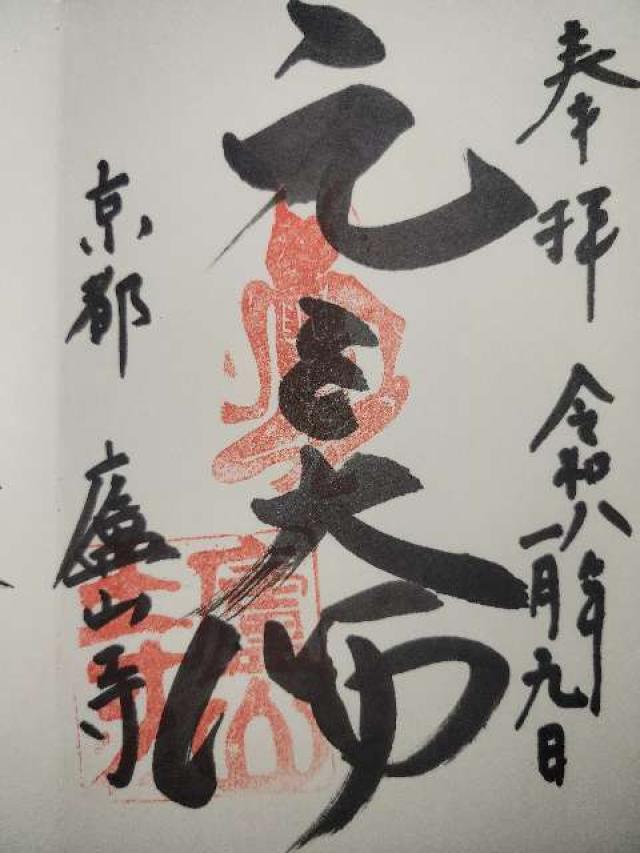 奉拝
令和八年
一月九日
元三大師
京都 廬山寺